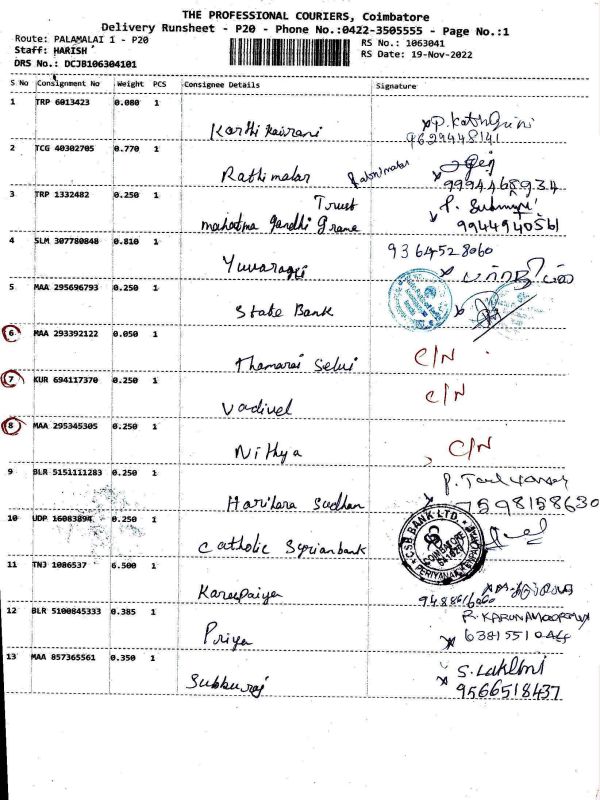 THE PROFESSIONAL COURIERS, Coimbatore
Delivery Runsheet - P20 - Phone No.:0422-3505555 - Page No.:1
Route: PALAMALAI 1 - P20 RS No.: 1063041
Staff: HARISH RS Date: 19-Nov-2022
DRS No.: DCJB106304101
S No Consignment No Weight PCS Consignee Details Signature
1 TRP 6013423 0.080 1
Karthikairani
9629448141
2 TCG 40302705 0.770 1
Rathimalar Rathimalar
9994468934
3 TRP 1332482 0.250 1
Trust
mahatma gandhi grama
9944940561
4 SLM 307780848 0.810 1 9364528060
Yuvaraji
5 MAA 295696793 0.250 1
State Bank
6 MAA 293392122 0.050 1
Thamarai Selvi C/N
7 KUR 694117370 0.250 1
Vadivel C/N
8 MAA 295345305 0.250 1
Nithya C/N
9 BLR 5151111283 0.250 1
Harihara Sudhan 7598158630
10 UDP 16083894 0.250 1
Catholic Syrian bank
CSB BANK LTD.
COIMBATORE
11 TNJ 1086537 6.500 1
Karuppaiya
12 BLR 5100845333 0.385 1
Priya
6381551044
13 MAA 857365561 0.350 1
Subburaj
S. Lakhmi
9566518437